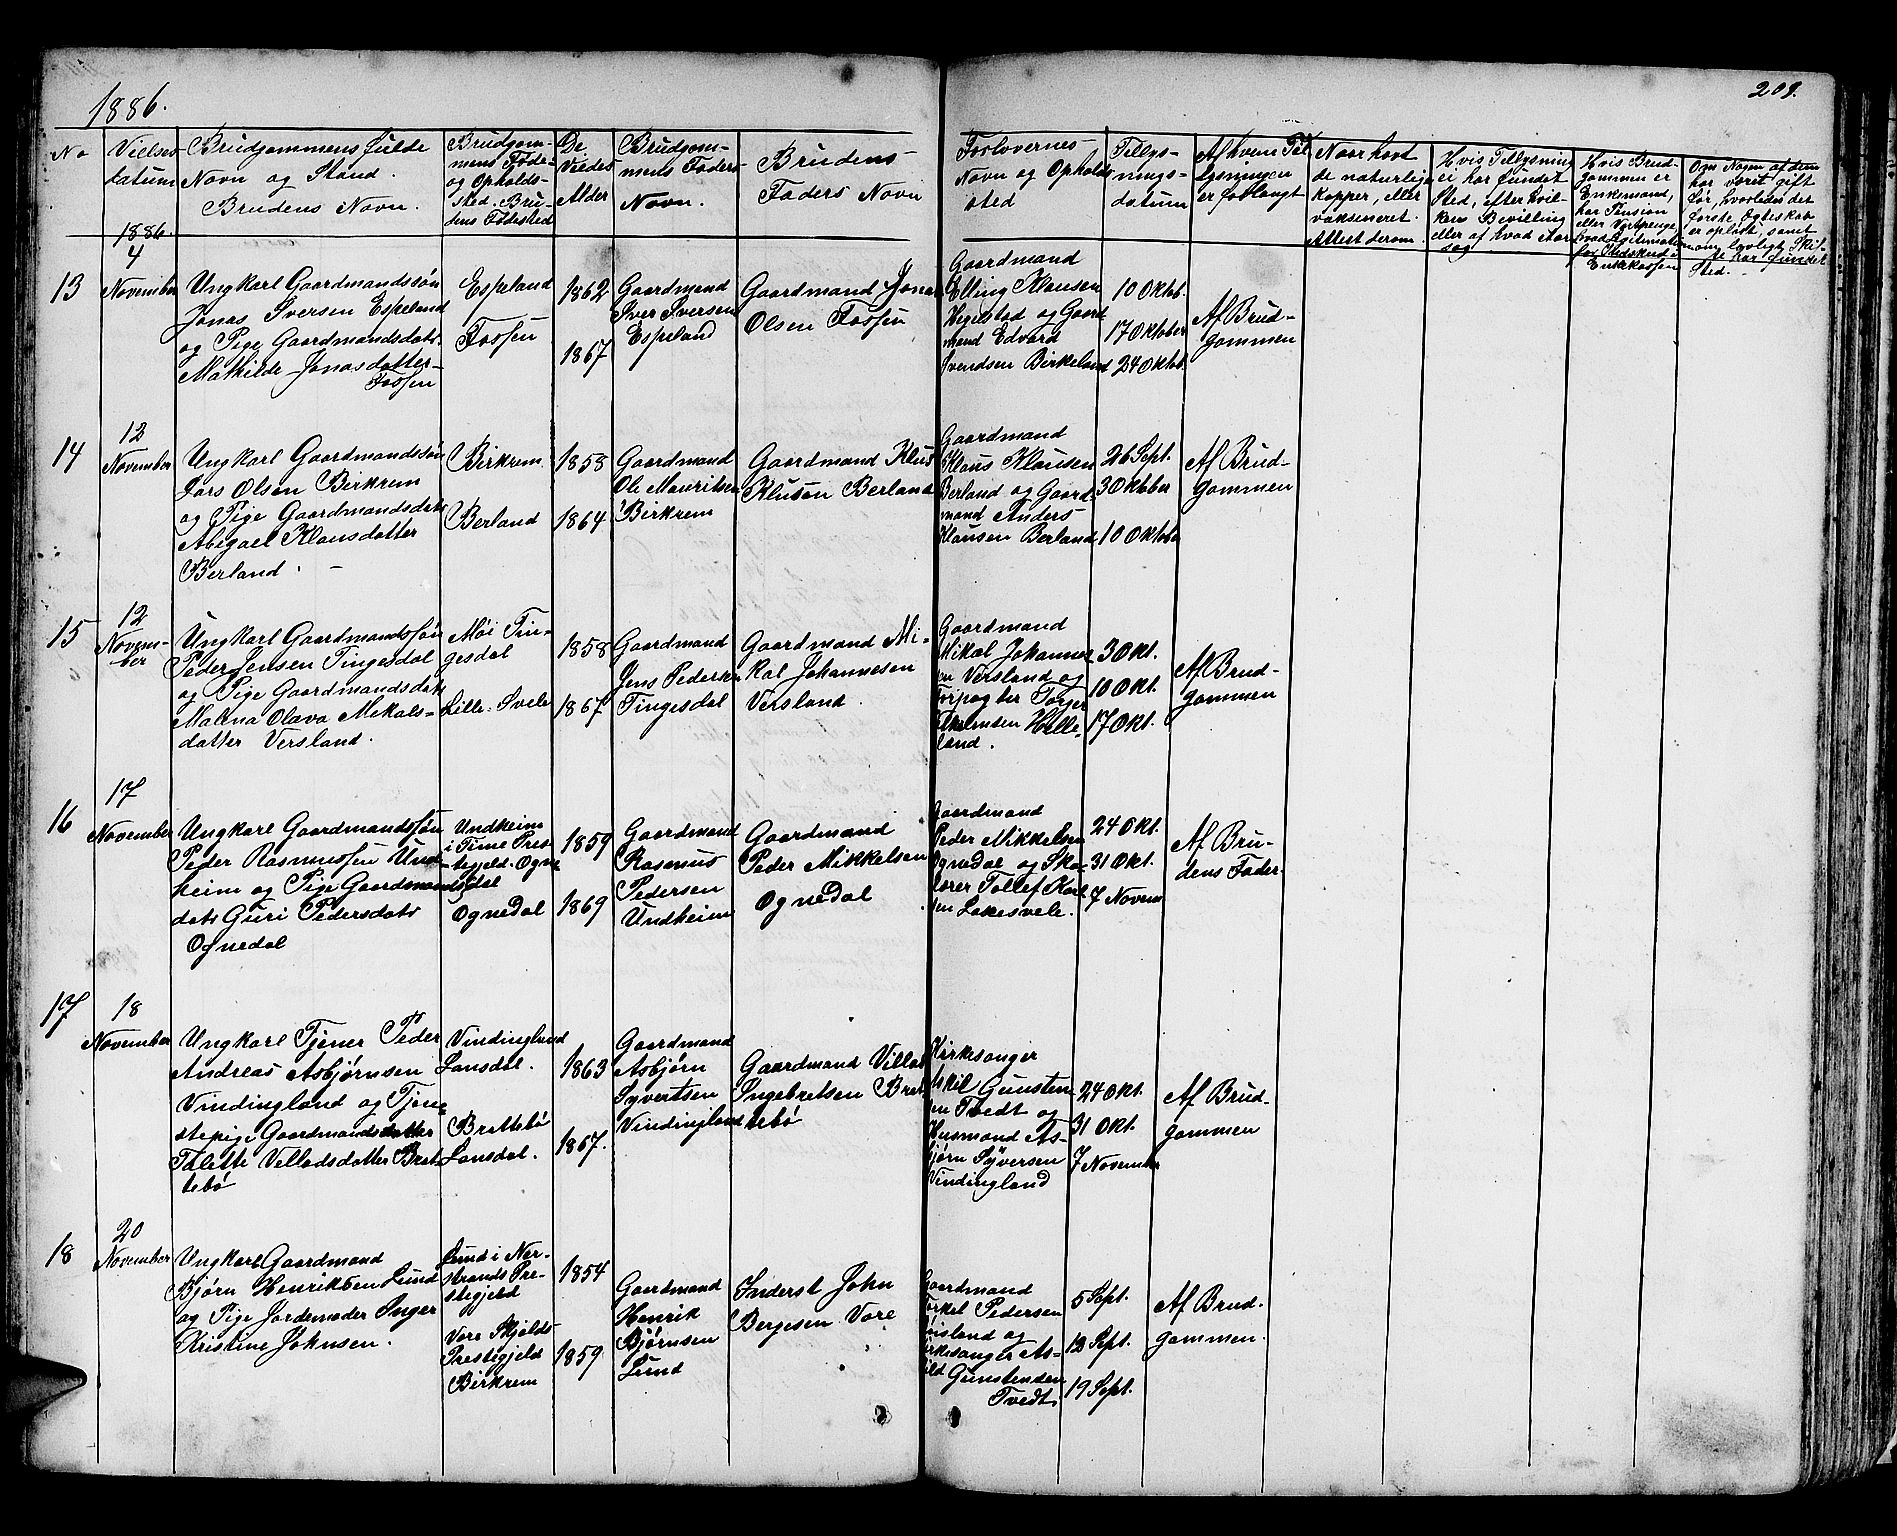 1886.
209.
No
Vielses
datum
Brudgommens fulde
Navn og Stand.
Brudens Navn.
Brudgom-
mens Føde-
og Opholds-
sted. Bru-
dens Fødested
De
Viedes
Alder
Brudgom-
mens Faders
Navn.
Brudens
Faders Navn
Forlovernes
Navn og Opholds
sted
Tillys-
nings-
datum
Af hvem Til
lysningen
er forlangt
Naar havt
de naturlige
kopper, eller
vaksineret.
Attest derom.
Hvis Tillysning
ei har fundet
Sted, efter hvil-
ken Bevilling
eller af hvad Aar
sag
Hvis Brud-
gommen er
Enkemand,
har Pension
eller
for
Enkekassen
Om Nogen af dem
har været gift
før, hvorledes det
første Ægteskab
er opløst, samt
om lovligt Skif-
te har fundet
Sted.
1886.
13
4
November
Ungkarl Gaardmandssøn
Jonas Iversen Espeland
og Pige Gaardmandsdatr.
Mathilde Jonasdatter
Fossen
Espeland
Fossen
1862
1867
Gaardmand
Iver Iversen
Espeland
Gaardmand Jonas
Olsen Fossen
Gaardmand
Elling Klausen
Hegelstad og Gaard
mand Edvard
Svendsen Birkeland
10 Oktb.
17 Oktober
24 Oktb.
Af Brud-
gommen
14
12
November
Ungkarl Gaardmandssøn
Lars Olsen Birkrem
og Pige Gaardmandsdatr
Abigael Klausdatter
Berland
Birkrem
Berland
1858
1864
Gaardmand
Ole Mauritsen
Birkrem
Gaardmand Klaus
Klausen Berland
Gaardmand
Klaus Klausen
Berland og Gaard-
mand Anders
Klausen Berland
26 Sept.
3 Oktober
10 Oktober
Af Brud-
gommen
15
12
Novem-
ber
Ungkarl Gaardmandssøn
Peder Jensen Tingesdal
og Pige Gaardmandsdatr
Malena Olava Mekals-
datter Versland.
Møi Tin-
gesdal
Lille Svele
1858
1867
Gaardmand
Jens Pedersen
Tingesdal
Gaardmand Mi-
kal Johannesen
Versland.
Gaardmand
Mikal Johannes
en Versland og
Torger
Helle-
land.
3 Okt.
10 Okt.
17 Okt.
Af Brud-
gommen
16
17
November
Ungkarl Gaardmandssøn
Peder Rasmussen Und
heim og Pige Gaardmands
datr Guri Pedersdatr
Ognedal
Undheim
i Time Pres-
tegjeld. Ogne
dal
Ognedal
1859
1869
Gaardmand
Rasmus
Pedersen
Undheim
Gaardmand
Peder Mikkelsen
Ognedal
Gaardmand
Peder Mikkelsen
Ognedal og Sko-
lærer Tollef Karl
sen Lakesvele.
24 Okt.
31 Okt.
7 Novem
Af Bru-
dens Fader
17
18
November
Ungkarl Tjener Peder
Andreas Asbjørnsen
Vindingland og Tjene
stepige Gaardmandsdatter
Talette Velladsdatter Brat
tebø
Vindingland
Lansdal.
Brattebø
Lansdal.
1863
1867.
Gaardmand
Asbjørn
Syvertsen
Vindingland
Gaardmand Villad
Ingebretsen Brat
tebø
Kirkesanger
Askil Gunsten
en Tvedt og
Husmand As-
bjørn Syversen
Vindingland
24 Okt.
31 Okt.
7 November
Af Brud-
gommen
18
20
November
Ungkarl Gaardmand
Bjørn Henriksen Lund
og Pige Jordemoder Inger
Kristine Johnsen.
Lund i Ner-
strands Pre-
stegjeld
Vore Skjolds
Prestegjeld
Birkrem
1854
1859
Gaardmand
Henrik
Bjørnsen
Lund
Inderst John
Bergesen Vore
Gaardmand
Torkel Pedersen
og
Kirkesanger As-
kild Gunstensen
Tvedt.
5 Sept.
12 Sept.
19 Sept.
Af Brud.
gommen.